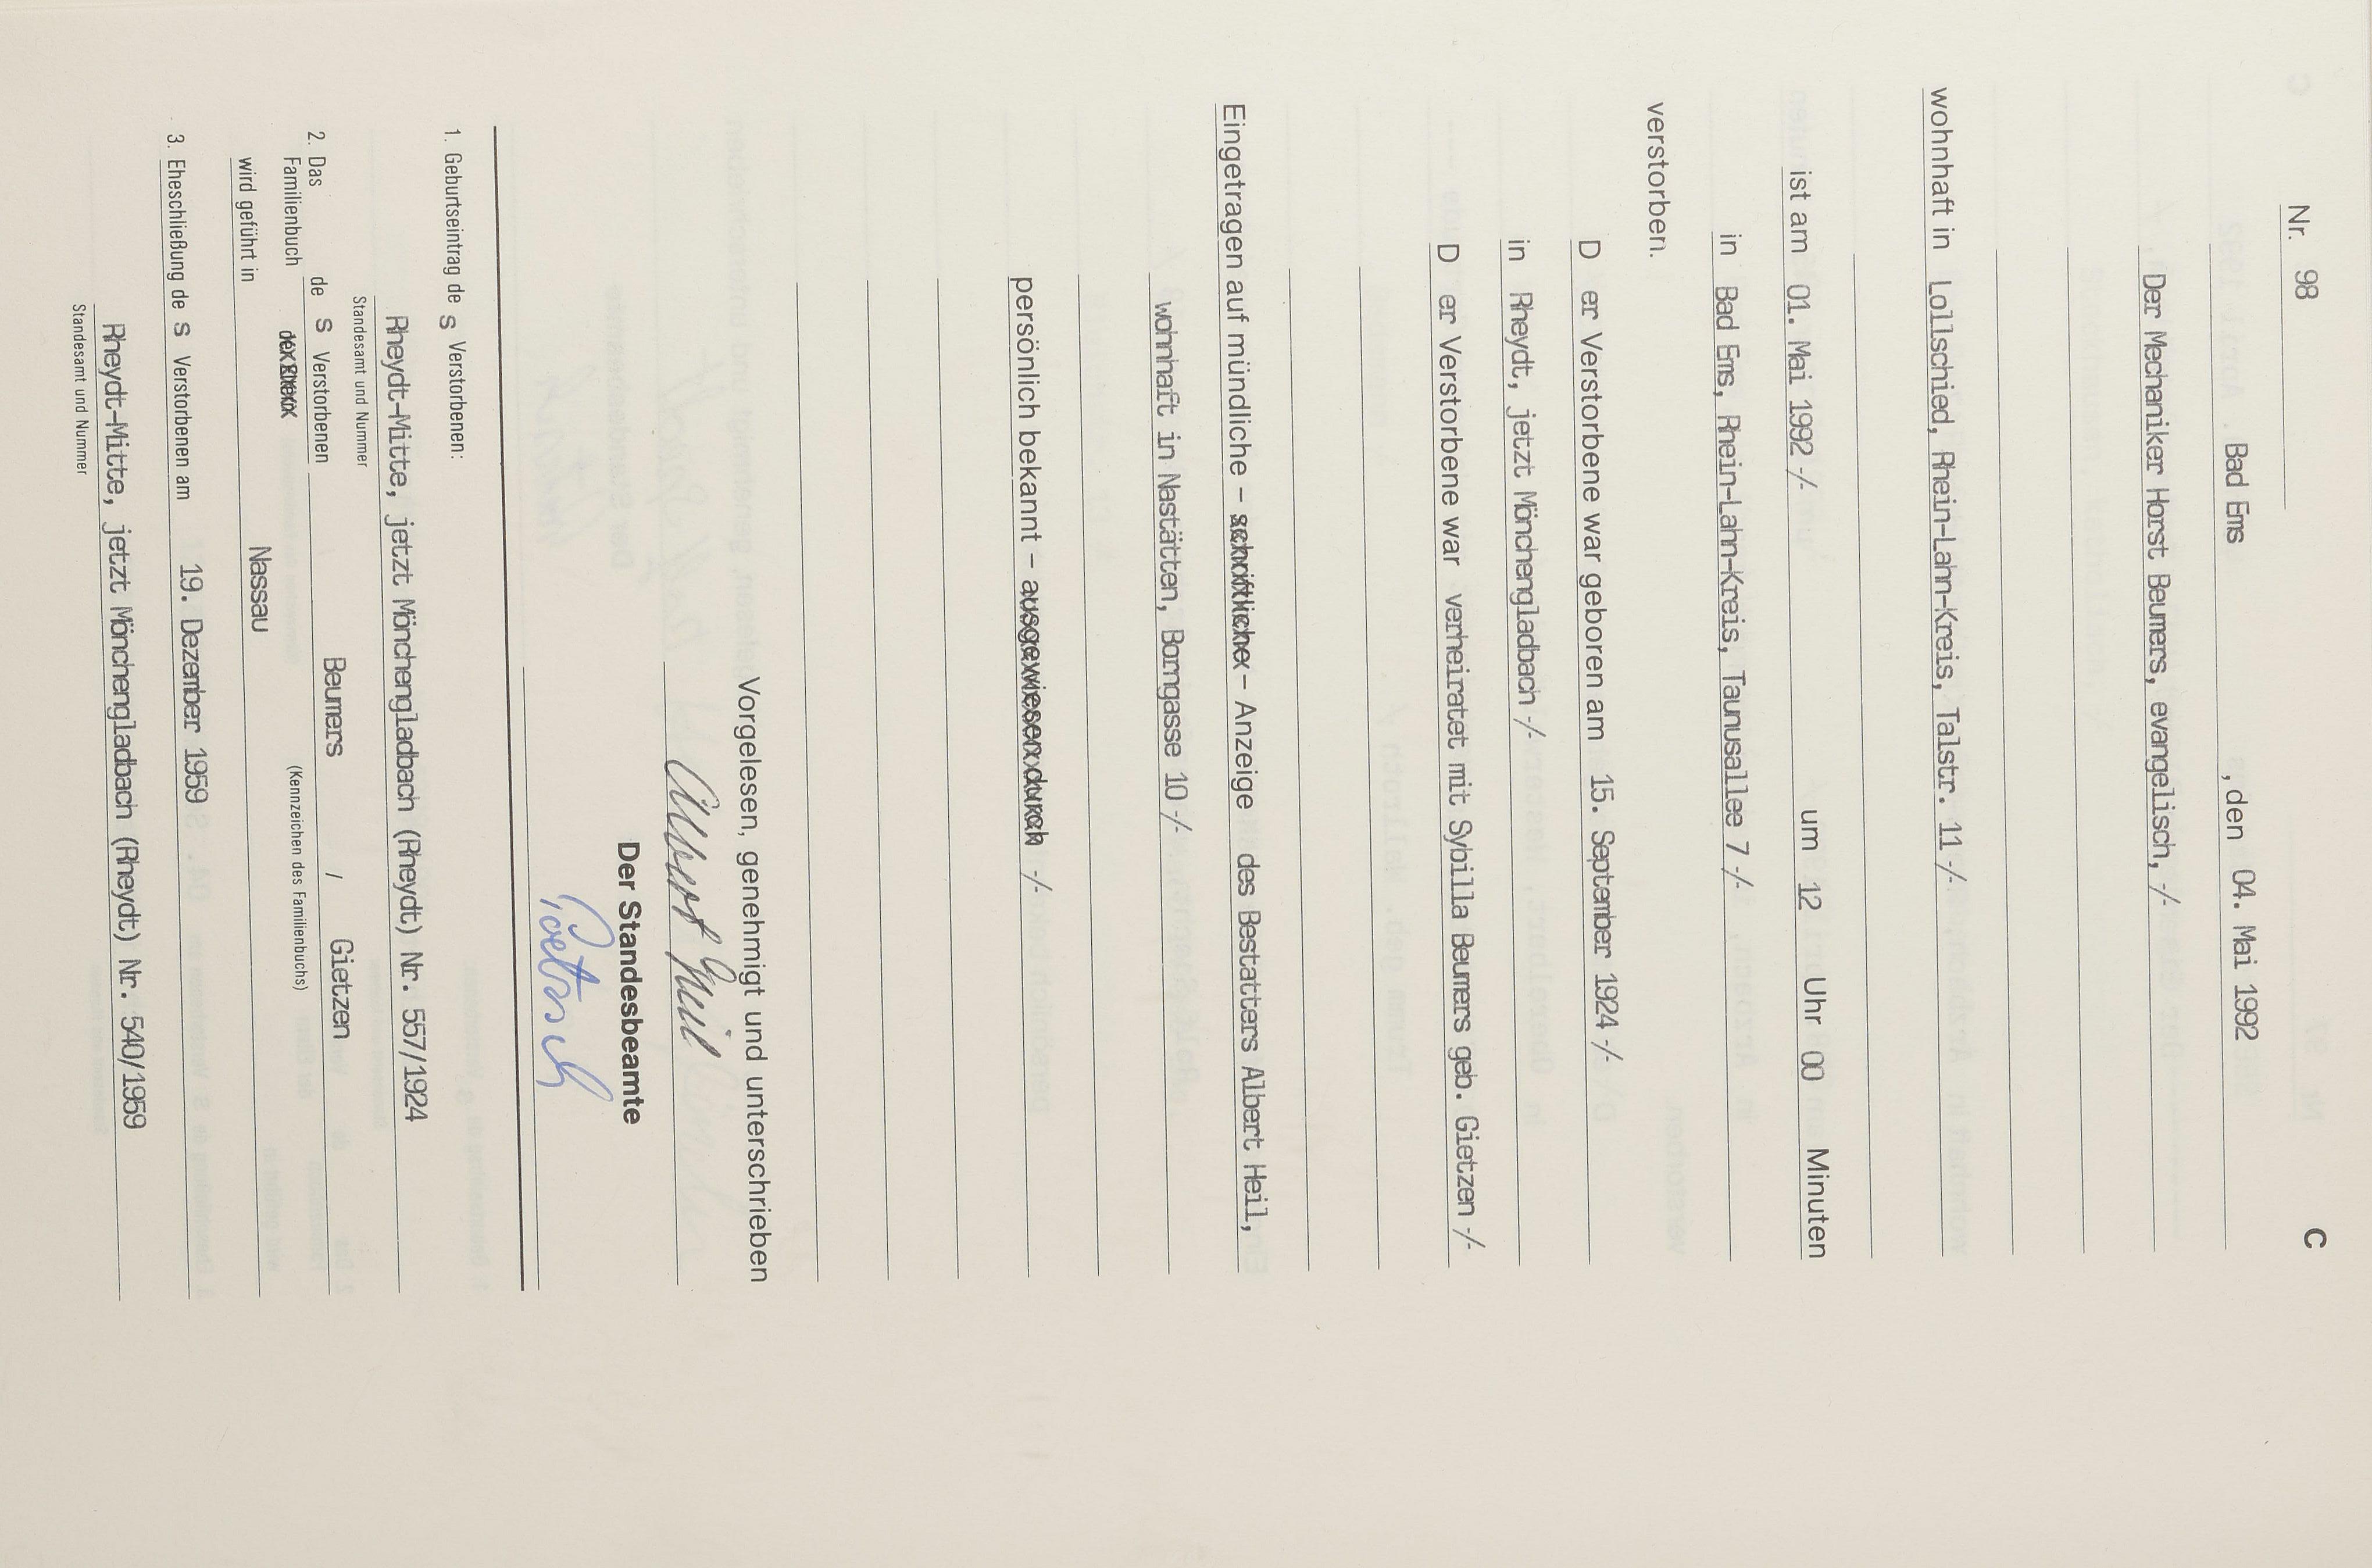 C
Nr. 98
Bad Ems , den 04. Mai 1992
Der Mechaniker Horst Beumers, evangelisch, -/-
wohnhaft in Lollschied, Rhein-Lahn-Kreis, Talstr. 11 -/-
ist am 01. Mai 1992 -/- um 12 Uhr 00 Minuten
in Bad Ems, Rhein-Lahn-Kreis, Taunusallee 7 -/-
verstorben.
D er Verstorbene war geboren am 15. September 1924 -/-
in Rheydt, jetzt Mönchengladbach -/-
D er Verstorbene war verheiratet mit Sybilla Beumers geb. Gietzen -/-
Eingetragen auf mündliche – schriftliche – Anzeige des Bestatters Albert Heil,
wohnhaft in Nastätten, Borngasse 10 -/-
persönlich bekannt – ausgewiesen durch -/-
Vorgelesen, genehmigt und unterschrieben
Albert Heil
Der Standesbeamte
1. Geburtseintrag de s Verstorbenen:
Rheydt-Mitte, jetzt Mönchengladbach (Rheydt) Nr. 557/1924
Standesamt und Nummer
2. Das Familienbuch de s Verstorbenen Beumers / Gietzen
(Kennzeichen des Familienbuchs)
wird geführt in Nassau
3. Eheschließung de s Verstorbenen am 19. Dezember 1959
Rheydt-Mitte, jetzt Mönchengladbach (Rheydt) Nr. 540/1959
Standesamt und Nummer